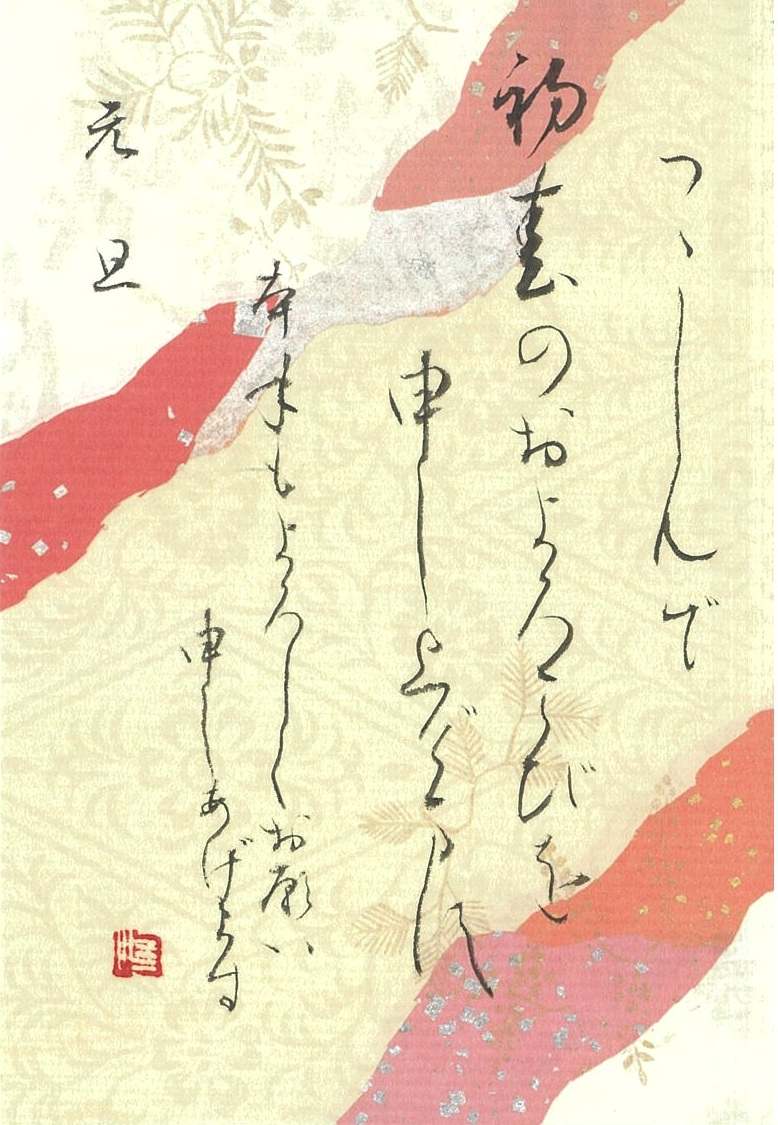 つゝしんで
初春のおよろこびを
申し上げます
本年もよろしくお願い
申しあげます
元旦